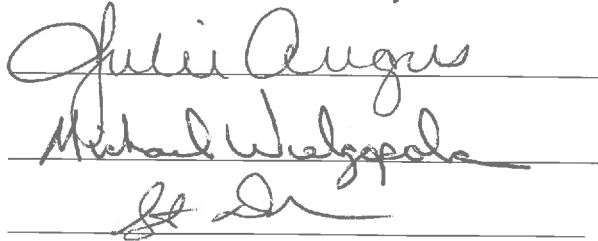 Julie Angus
Michael Wielgopola